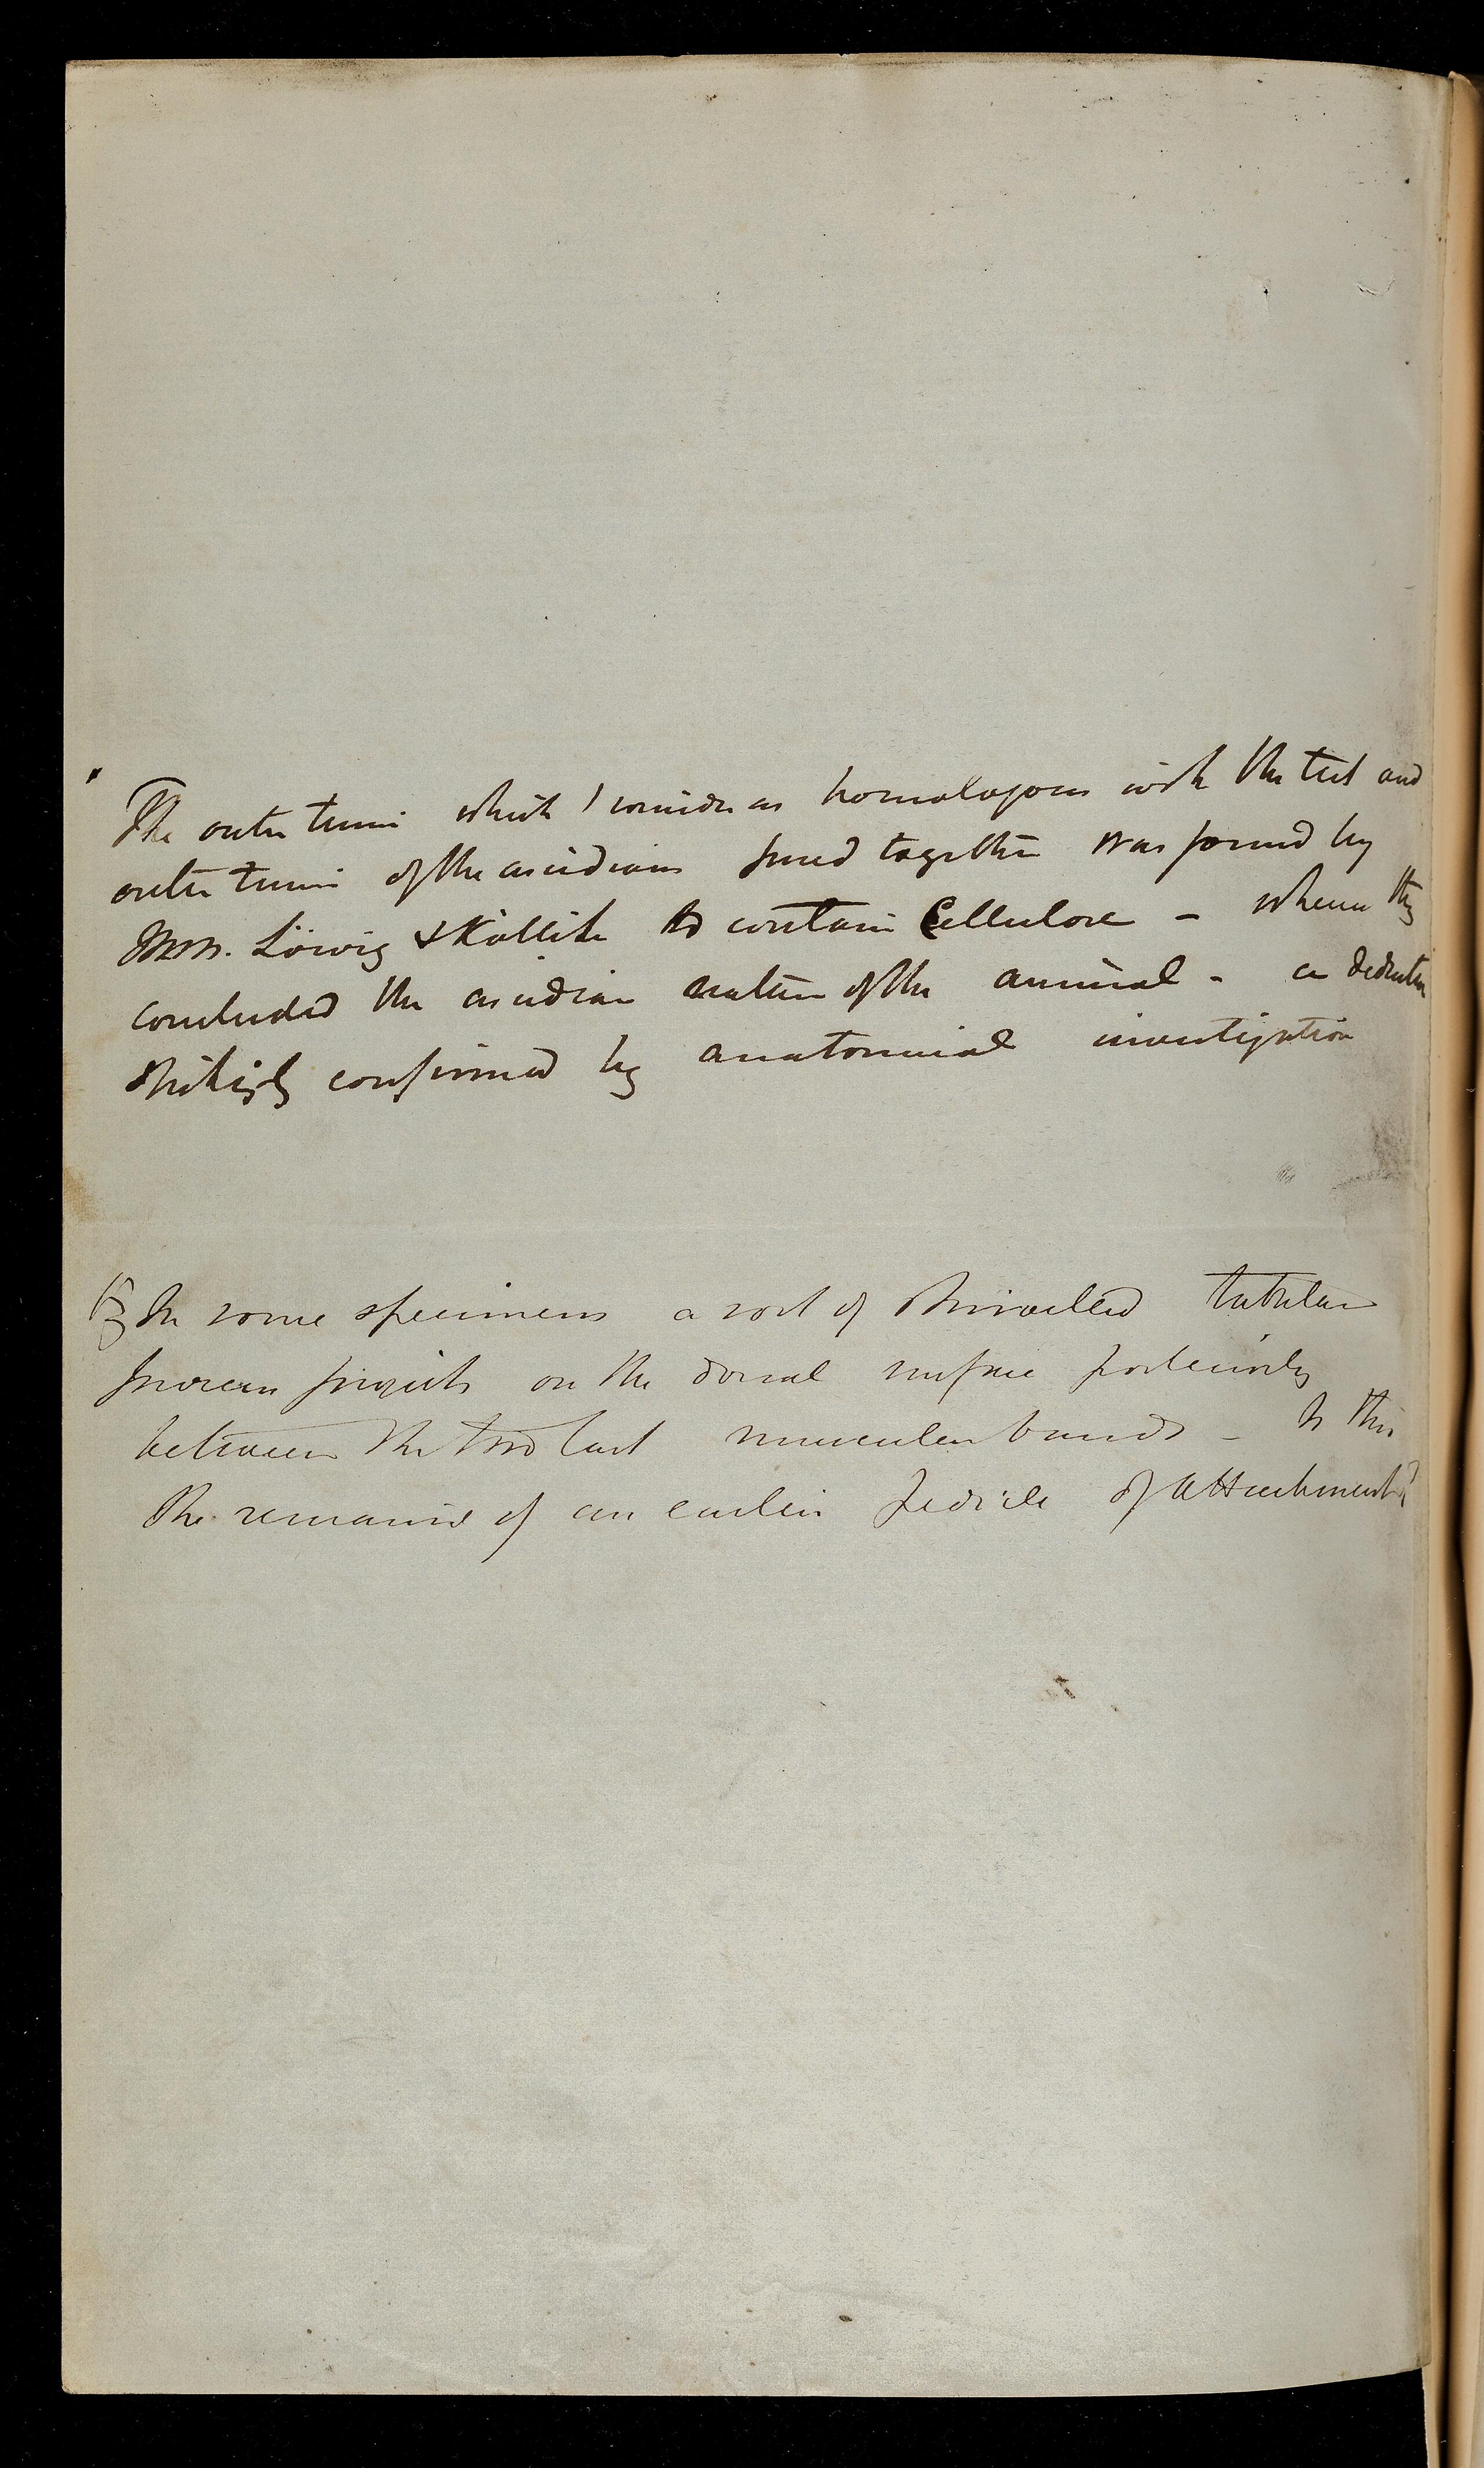 The outer tunic which I consider as homologous with the test and
outer tunic of the ascidians fused together was found by
MM. Löwig & Kölliker to contain Cellulose – whence they
concluded the ascidian nature of the animal – a deduction
strikingly confirmed by anatomical investigation
In some specimens a sort of shrivelled tubular
process projects on the dorsal surface posteriorly
between the two last muscular bands – Is this
the remains of an earlier pedicle of attachment?